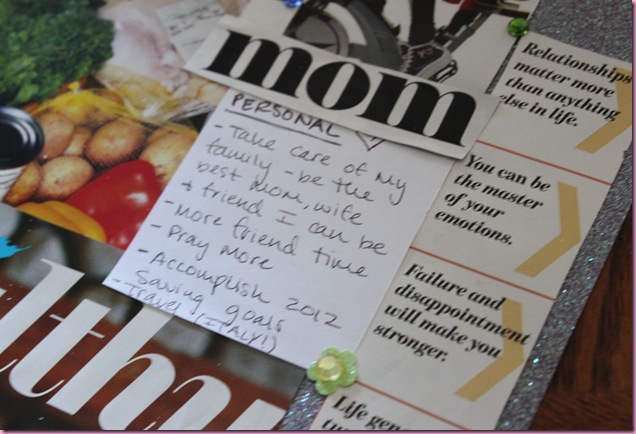 mom
PERSONAL
- Take care of my
family - be the
best mom, wife
+ friend I can be
- More friend time
- Pray more
- Accomplish 2012
Saving goals
- Travel (ITALY!)
Relationships
matter more
than anything
else in life.
You can be
the master
of your
emotions.
Failure and
disappointment
will make you
stronger.
Life